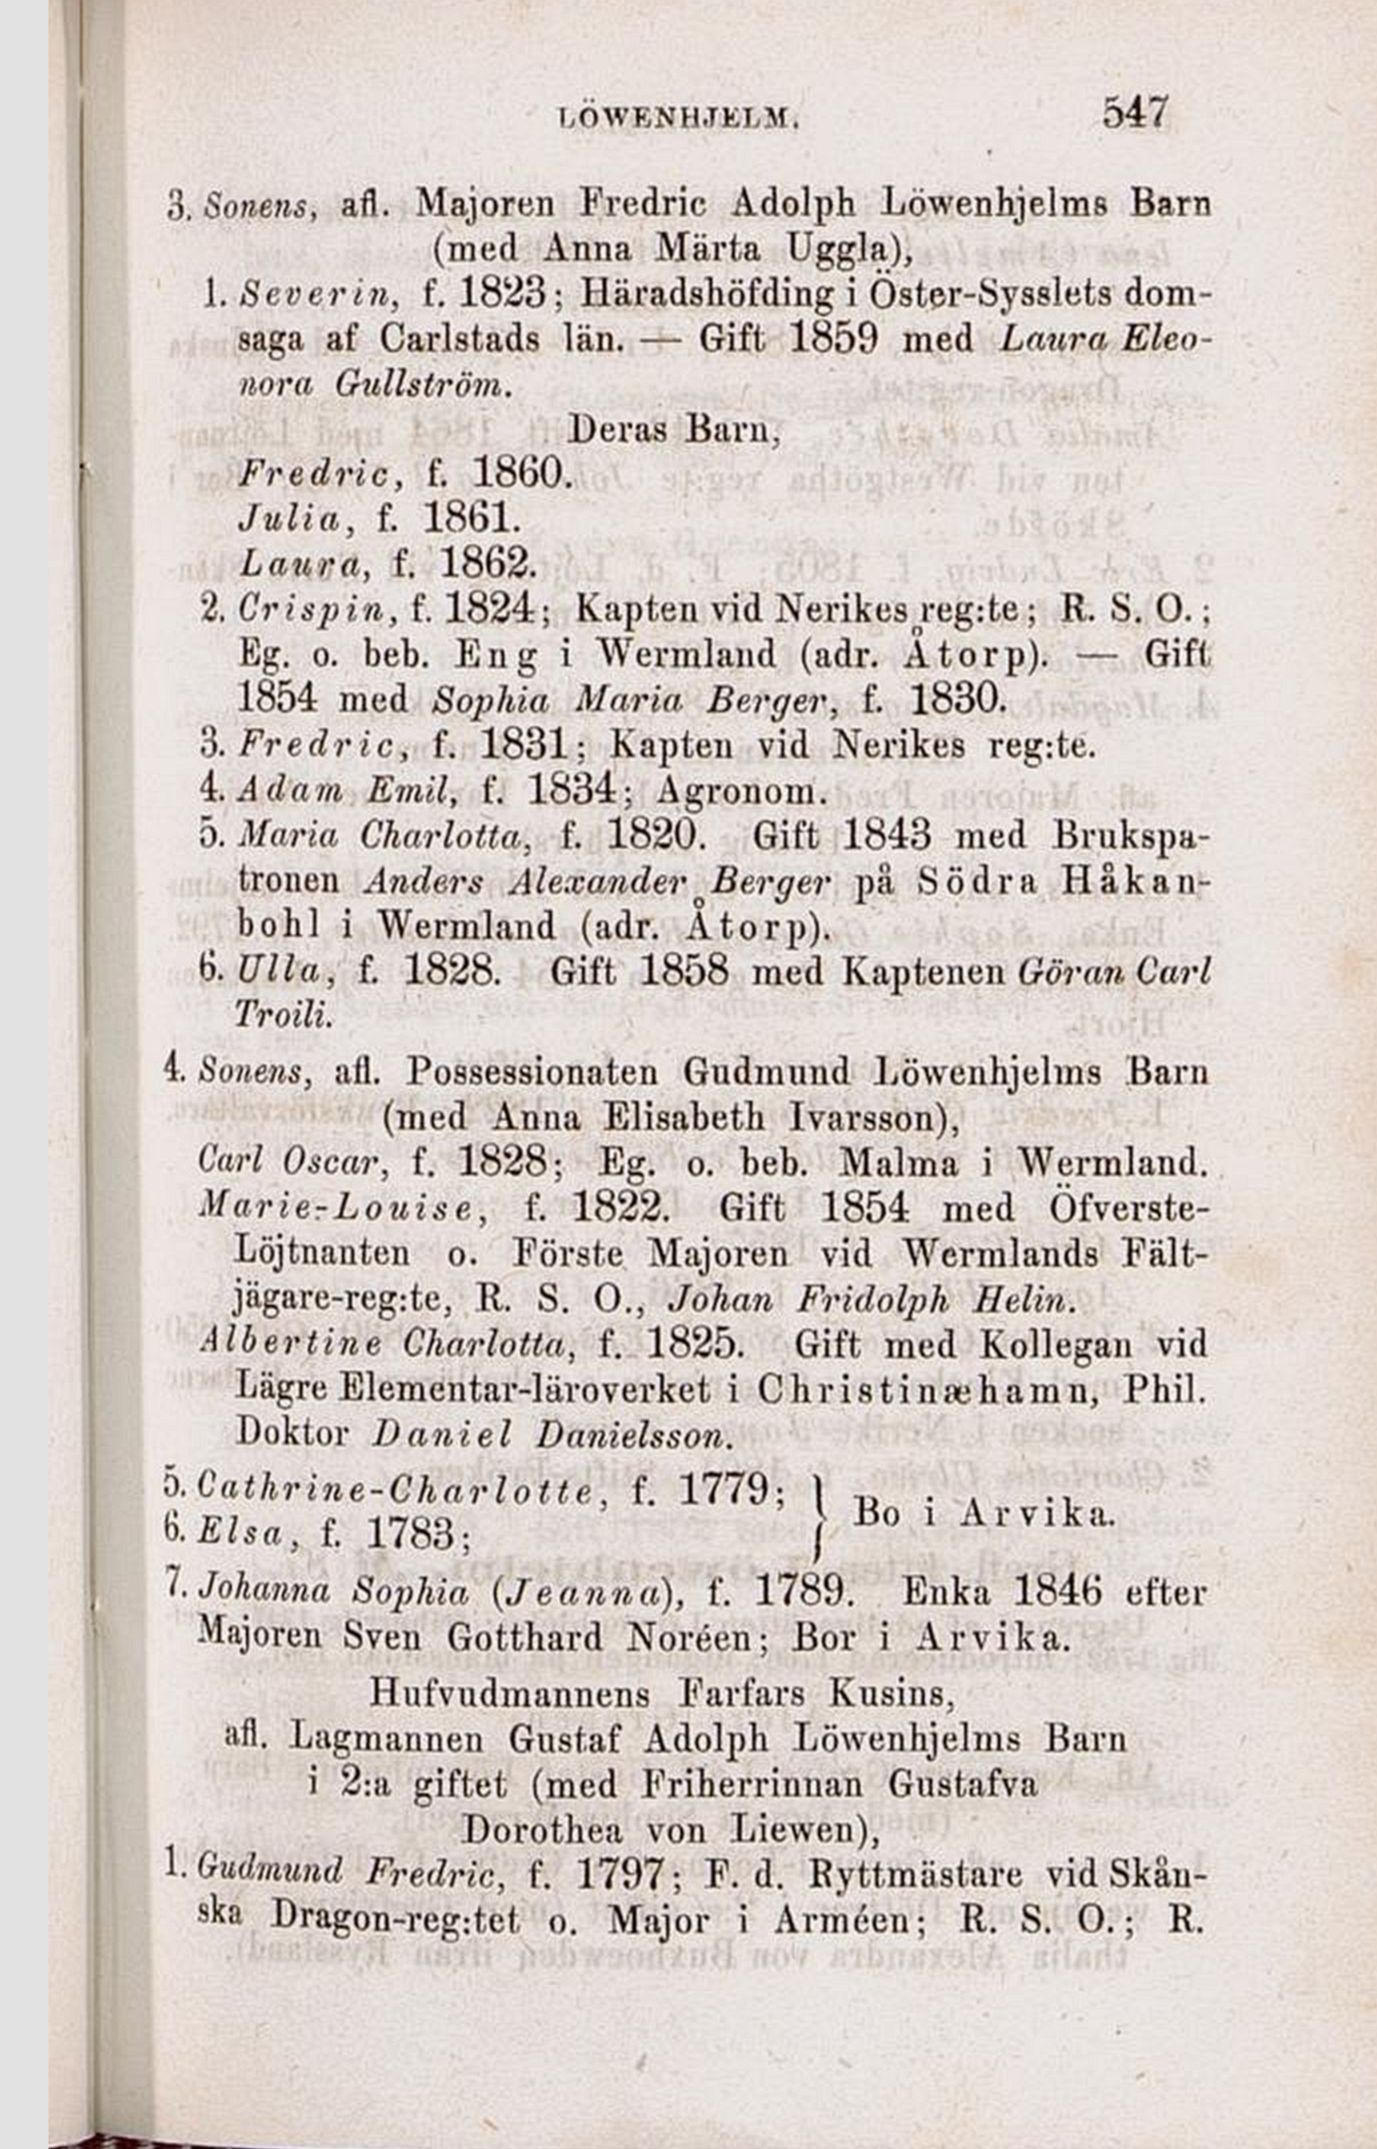 LÖWENHJELM. 547
3. Sonens, afl. Majoren Fredric Adolph Löwenhjelms Barn
(med Anna Märta Uggla),
1. Severin, f. 1823; Häradshöfding i Öster-Sysslets dom-
saga af Carlstads län. — Gift 1859 med Laura Eleo-
nora Gullström.
Deras Barn,
Fredric, f. 1860.
Julia, f. 1861.
Laura, f. 1862.
2. Crispin, f. 1824; Kapten vid Nerikes reg:te; R. S. O.;
Eg. o. beb. Eng i Wermland (adr. Åtorp). — Gift
1854 med Sophia Maria Berger, f. 1830.
3. Fredric, f. 1831; Kapten vid Nerikes reg:te.
4. Adam Emil, f. 1834; Agronom.
5. Maria Charlotta, f. 1820. Gift 1843 med Brukspa-
tronen Anders Alexander Berger på Södra Håkan-
bohl i Wermland (adr. Åtorp).
6. Ulla, f. 1828. Gift 1858 med Kaptenen Göran Carl
Troili.
4. Sonens, afl. Possessionaten Gudmund Löwenhjelms Barn
(med Anna Elisabeth Ivarsson),
Carl Oscar, f. 1828; Eg. o. beb. Malma i Wermland.
Marie-Louise, f. 1822. Gift 1854 med Öfverste-
Löjtnanten o. Förste Majoren vid Wermlands Fält-
jägare-reg:te, R. S. O., Johan Fridolph Helin.
Albertine Charlotta, f. 1825. Gift med Kollegan vid
Lägre Elementar-läroverket i Christinæhamn, Phil.
Doktor Daniel Danielsson.
5. Cathrine-Charlotte, f. 1779; } Bo i Arvika.
6. Elsa, f. 1783;
7. Johanna Sophia (Jeanna), f. 1789. Enka 1846 efter
Majoren Sven Gotthard Noréen; Bor i Arvika.
Hufvudmannens Farfars Kusins,
afl. Lagmannen Gustaf Adolph Löwenhjelms Barn
i 2:a giftet (med Friherrinnan Gustafva
Dorothea von Liewen),
1. Gudmund Fredric, f. 1797; F. d. Ryttmästare vid Skån-
ska Dragon-reg:tet o. Major i Arméen; R. S. O.; R.